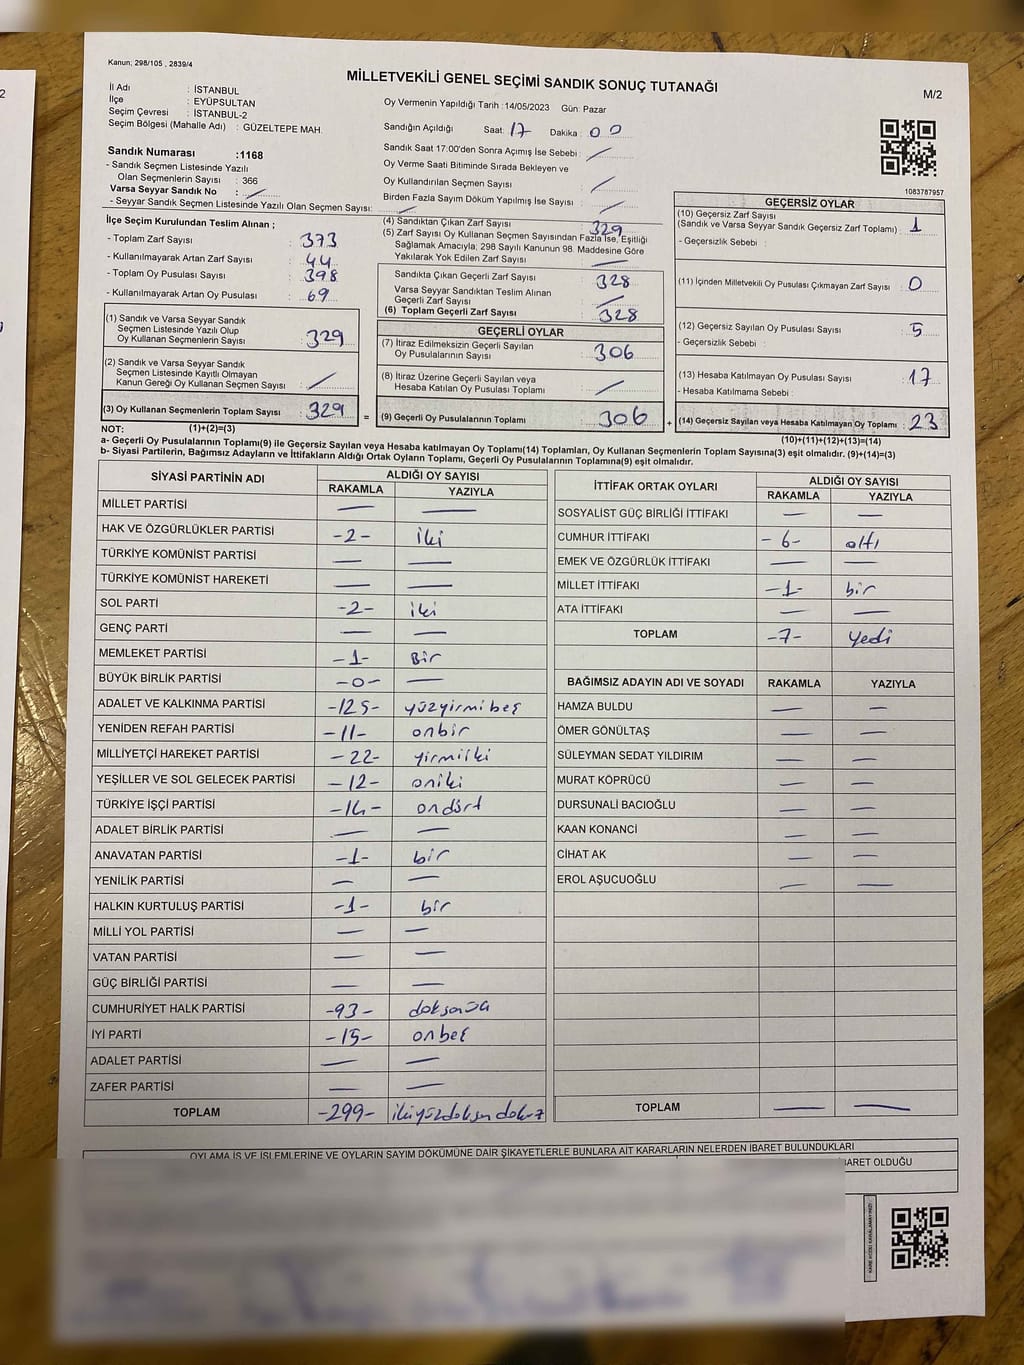 Kanun; 298/105 , 2839/4
MİLLETVEKİLİ GENEL SEÇİMİ SANDIK SONUÇ TUTANAĞI
M/2
İl Adı : İSTANBUL
İlçe : EYÜPSULTAN
Seçim Çevresi : İSTANBUL-2
Seçim Bölgesi (Mahalle Adı) : GÜZELTEPE MAH.
Oy Vermenin Yapıldığı Tarih : 14/05/2023 Gün: Pazar
Sandığın Açıldığı Saat: 17 Dakika : 00
Sandık Saat 17:00'den Sonra Açımış İse Sebebi : /
Oy Verme Saati Bitiminde Sırada Bekleyen ve
Oy Kullandırılan Seçmen Sayısı : /
Birden Fazla Sayım Döküm Yapılmış İse Sayısı : /
Sandık Numarası :1168
- Sandık Seçmen Listesinde Yazılı
Olan Seçmenlerin Sayısı : 366
Varsa Seyyar Sandık No : /
- Seyyar Sandık Seçmen Listesinde Yazılı Olan Seçmen Sayısı:
1083787957
İlçe Seçim Kurulundan Teslim Alınan ;
- Toplam Zarf Sayısı : 373
- Kullanılmayarak Artan Zarf Sayısı : 44
- Toplam Oy Pusulası Sayısı : 398
- Kullanılmayarak Artan Oy Pusulası : 69
(1) Sandık ve Varsa Seyyar Sandık
Seçmen Listesinde Yazılı Olup
Oy Kullanan Seçmenlerin Sayısı : 329
(2) Sandık ve Varsa Seyyar Sandık
Seçmen Listesinde Kayıtlı Olmayan
Kanun Gereği Oy Kullanan Seçmen Sayısı : /
(3) Oy Kullanan Seçmenlerin Toplam Sayısı : 329
(4) Sandıktan Çıkan Zarf Sayısı : 329
(5) Zarf Sayısı Oy Kullanan Seçmen Sayısından Fazla İse, Eşitliği
Sağlamak Amacıyla; 298 Sayılı Kanunun 98. Maddesine Göre
Yakılarak Yok Edilen Zarf Sayısı : —
Sandıkta Çıkan Geçerli Zarf Sayısı : 328
Varsa Seyyar Sandıktan Teslim Alınan
Geçerli Zarf Sayısı : /
(6) Toplam Geçerli Zarf Sayısı : 328
GEÇERLİ OYLAR
(7) İtiraz Edilmeksizin Geçerli Sayılan
Oy Pusulalarının Sayısı : 306
(8) İtiraz Üzerine Geçerli Sayılan veya
Hesaba Katılan Oy Pusulası Toplamı : /
= (9) Geçerli Oy Pusulalarının Toplamı : 306
GEÇERSİZ OYLAR
(10) Geçersiz Zarf Sayısı
(Sandık ve Varsa Seyyar Sandık Geçersiz Zarf Toplamı) : 1
- Geçersizlik Sebebi :
(11) İçinden Milletvekili Oy Pusulası Çıkmayan Zarf Sayısı : 0
(12) Geçersiz Sayılan Oy Pusulası Sayısı : 5
- Geçersizlik Sebebi :
(13) Hesaba Katılmayan Oy Pusulası Sayısı : 17
- Hesaba Katılmama Sebebi :
+ (14) Geçersiz Sayılan veya Hesaba Katılmayan Oy Toplamı : 23
NOT: (1)+(2)=(3)
(10)+(11)+(12)+(13)=(14)
a- Geçerli Oy Pusulalarının Toplamı(9) ile Geçersiz Sayılan veya Hesaba katılmayan Oy Toplamı(14) Toplamları, Oy Kullanan Seçmenlerin Toplam Sayısına(3) eşit olmalıdır. (9)+(14)=(3)
b- Siyasi Partilerin, Bağımsız Adayların ve İttifakların Aldığı Ortak Oyların Toplamı, Geçerli Oy Pusulalarının Toplamına(9) eşit olmalıdır.
SİYASİ PARTİNİN ADI ALDIĞI OY SAYISI
RAKAMLA YAZIYLA
MİLLET PARTİSİ — —
HAK VE ÖZGÜRLÜKLER PARTİSİ -2- iki
TÜRKİYE KOMÜNİST PARTİSİ — —
TÜRKİYE KOMÜNİST HAREKETİ — —
SOL PARTİ -2- iki
GENÇ PARTİ — —
MEMLEKET PARTİSİ -1- Bir
BÜYÜK BİRLİK PARTİSİ -0- —
ADALET VE KALKINMA PARTİSİ -125- yüzyirmibeş
YENİDEN REFAH PARTİSİ -11- onbir
MİLLİYETÇİ HAREKET PARTİSİ -22- yirmiiki
YEŞİLLER VE SOL GELECEK PARTİSİ -12- oniki
TÜRKİYE İŞÇİ PARTİSİ -14- ondört
ADALET BİRLİK PARTİSİ — —
ANAVATAN PARTİSİ -1- bir
YENİLİK PARTİSİ — —
HALKIN KURTULUŞ PARTİSİ -1- bir
MİLLİ YOL PARTİSİ — —
VATAN PARTİSİ — —
GÜÇ BİRLİĞİ PARTİSİ — —
CUMHURİYET HALK PARTİSİ -93- doksanüç
İYİ PARTİ -15- onbeş
ADALET PARTİSİ — —
ZAFER PARTİSİ — —
TOPLAM -299- ikiyüzdoksandokuz
İTTİFAK ORTAK OYLARI ALDIĞI OY SAYISI
RAKAMLA YAZIYLA
SOSYALIST GÜÇ BİRLİĞİ İTTİFAKI — —
CUMHUR İTTİFAKI -6- altı
EMEK VE ÖZGÜRLÜK İTTİFAKI — —
MİLLET İTTİFAKI -1- bir
ATA İTTİFAKI — —
TOPLAM -7- yedi
BAĞIMSIZ ADAYIN ADI VE SOYADI RAKAMLA YAZIYLA
HAMZA BULDU — —
ÖMER GÖNÜLTAŞ — —
SÜLEYMAN SEDAT YILDIRIM — —
MURAT KÖPRÜCÜ — —
DURSUNALİ BACIOĞLU — —
KAAN KONANCİ — —
CİHAT AK — —
EROL AŞUCUOĞLU — —
TOPLAM — —
OYLAMA İŞ VE İŞLEMLERİNE VE OYLARIN SAYIM DÖKÜMÜNE DAİR ŞİKAYETLERLE BUNLARA AİT KARARLARIN NELERDEN İBARET BULUNDUKLARI
BARET OLDUĞU